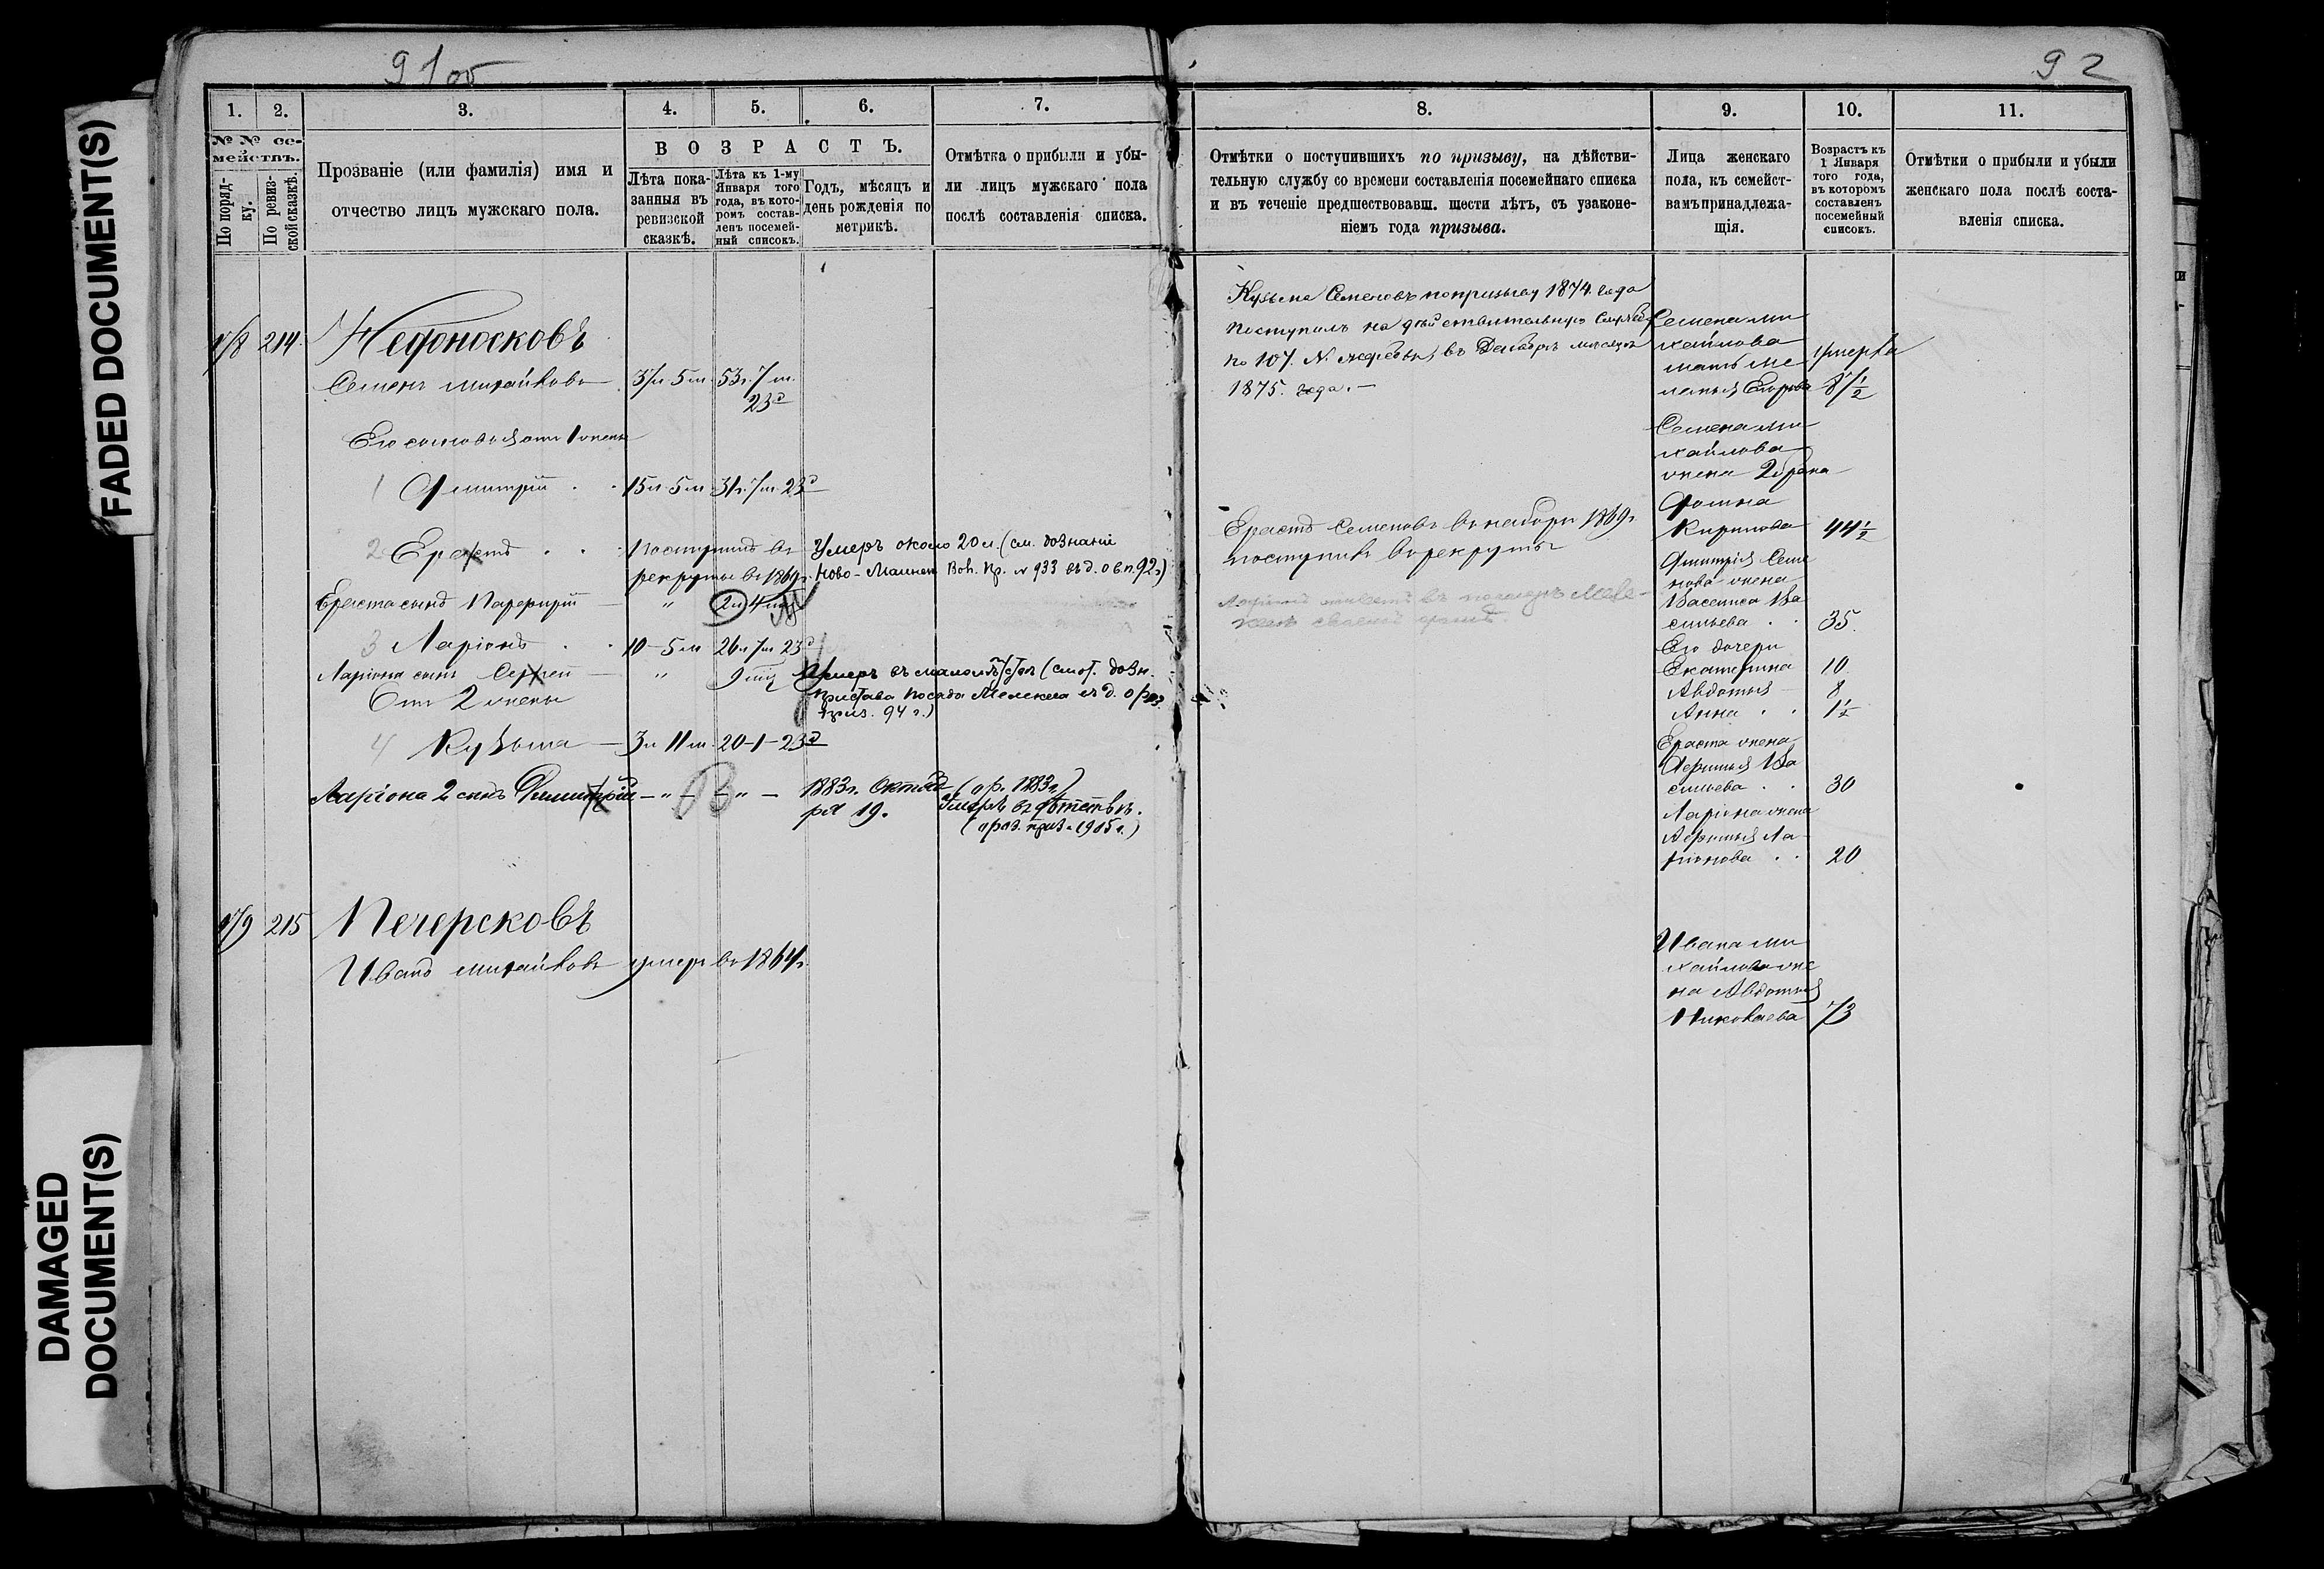 FADED DOCUMENT(S)
DAMAGED
DOCUMENT(S)
91об
1.
2.
3.
4.
5.
6.
7.
№ № се-
мействъ.
По поряд-
ку.
По ревиз-
ской сказкѣ.
Прозваніе (или фамилія) имя и
отчество лицъ мужскаго пола.
ВОЗРАСТЪ.
Лѣта пока-
занныя въ
ревизской
сказкѣ.
Лѣта къ 1-му
Января того
года, въ кото-
ромъ состав-
ленъ посемей-
ный списокъ.
Годъ, мѣсяцъ и
день рожденія по
метрикѣ.
Отмѣтка о прибыли и убы-
ли лицъ мужскаго пола
послѣ составленія списка.
214
Недоносковъ
Семенъ Михайловъ 37л 5м 53г. 7м.
23д
Его сыновья отъ 1 жены
1 Дмитрій 15л 5м 31г. 7м 23д
2 Ерастъ Поступилъ въ Умеръ около 20л. (см. дознаніе
рекруты въ 1869г. Ново-Маинск Вол. Пр. № 933 въ д. о в.п. 92г)
Ераста сынъ Парфирій " 2л 4м
3 Ларіонъ 10-5м 26л 7м 23д
Ларіона сынъ Сергей " Умеръ въ малолѣтствѣ (смот. дозн.
Отъ 2 жены пристава посада Мелекеса въ д. о раз.
приз. 94 г.)
4 Кузьма 3л 11м 20-1-23д
Ларіона 2 сынъ Димитрій — " — — " — 1883г. Октяб (о р. 1883г)
ря 19. Умеръ въ дѣтствѣ.
(о раз. приз. 1905г.)
215
Печерсковъ
Иванъ Михайловъ умеръ въ 1864г.
92
8.
9.
10.
11.
Отмѣтки о поступившихъ по призыву, на дѣйстви-
тельную службу со времени составленія посемейнаго списка
и въ теченіе предшествовавш. шести лѣтъ, съ узаконе-
ніемъ года призыва.
Лица женскаго
пола, къ семейст-
вамъ принадлежа-
щія.
Возрастъ къ
1 Января
того года,
въ которомъ
составленъ
посемейный
списокъ.
Отмѣтки о прибыли и убыли
женскаго пола послѣ соста-
вленія списка.
Кузьма Семеновъ по призыву 1874. года
поступилъ на дѣйствительную службу
по 107. № жеребья, въ Декабрѣ мѣсяцѣ
1875. года.—
Ерастъ Семеновъ въ наборъ 1869г.
поступилъ въ рекруты
Семена Ми
хайлова
мать Ме
ланья Егорова
умерла
87½
Семена Ми
хайлова
жена 2 брака
Фомина
Кирилова 44½
Дмитрія Семе
нова жена
Василиса Ва
сильева 35.
Его дочери
Екатерина 10
Авдотья 8
Анна 1½
Ераста жена
Афимья Ва
сильева 30
Ларіона жена
Афимья Ла
ріонова 20
Ивана Ми
хайлова же
на Авдотья
Николаева 73